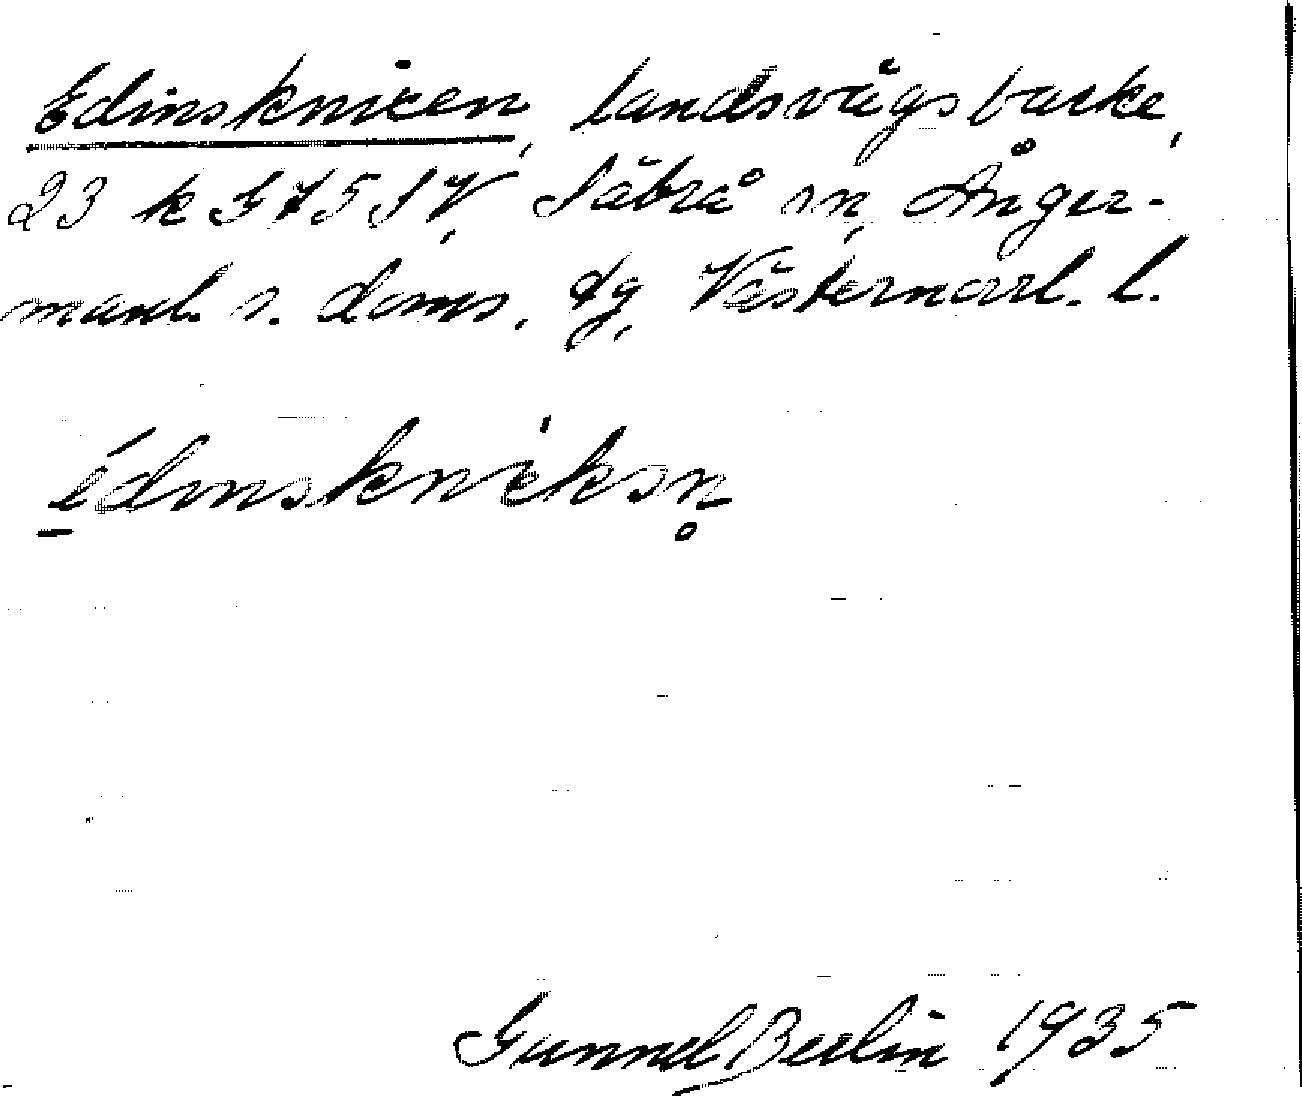 Edinsknicen, landsvägsbacke,
23 k G 75 SV, Säbrå sn, Ånger-
manl. s. doms. dg, Västernorrl. l.
édinskniksn̥
Gunnel Berlin 1935